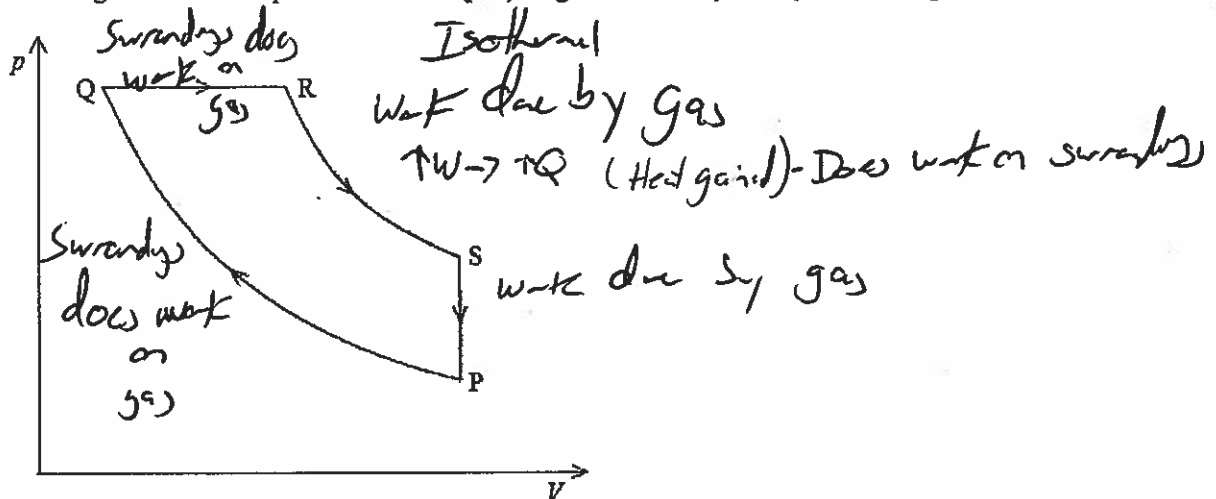 Surrandys does
work on
gas
Isothermal
p
Q
R
Work done by gas
↑W→ ↑Q (Heat gained) - Does work on surrandys
Surrandys
does work
on
gas
S
work done by gas
P
V